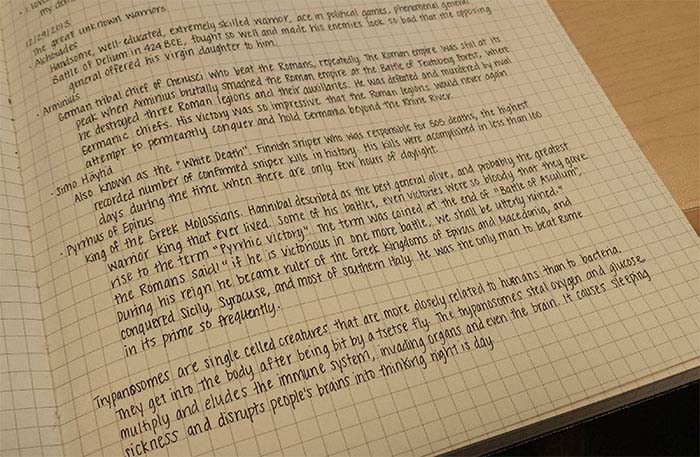 · I love
my
12/29/2015
The great unknown warriors.
· Alcibiades
Handsome, well-educated, extremely skilled warrior, ace in political games, phenomenal general
Battle of Delium in 424 BCE, fought so well and made his enemies look so bad that the opposing
general offered his virgin daughter to him.
· Arminius
German tribal chief of Cherusci who beat the Romans, repeatedly. The Roman empire was still at its
peak when Arminius brutally smashed the Roman empire at the Battle of Teutoburg forest, where
he destroyed three Roman legions and their auxiliaries. He was defeated and murdered by rival
Germanic chiefs. His victory was so impressive that the Roman legions would never again
attempt to permeantly conquer and hold Germania beyond the Rhine River.
· Simo Häyhä
Also known as the "White Death". Finnish sniper who was responsible for 505 deaths, the highest
recorded number of confirmed sniper kills in history. His kills were acomplished in less than 100
days during the time when there are only few hours of daylight.
· Pyrrhus of Epirus
King of the Greek Molossians. Hannibal described as the best general alive, and probably the greatest
warrior king that ever lived. Some of his battles, even victories were so bloody that they gave
rise to the term "Pyrrhic victory". The term was coined at the end of "Battle of Asculum",
the Romans said "if he is victorious in one more battle, we shall be utterly ruined."
During his reign he became ruler of the Greek Kingdoms of Epirus and Macedonia, and
conquered Sicily, Syracuse, and most of southern Italy. He was the only man to beat Rome
in its prime so frequently.
Trypanosomes are single celled creatures that are more closely related to humans than to bacteria.
They get into the body after being bit by a tsetse fly. The trypanosomes steal oxygen and glucose
multiply and eludes the immune system, invading organs and even the brain. It causes sleeping
sickness and disrupts people's brains into thinking night is day.